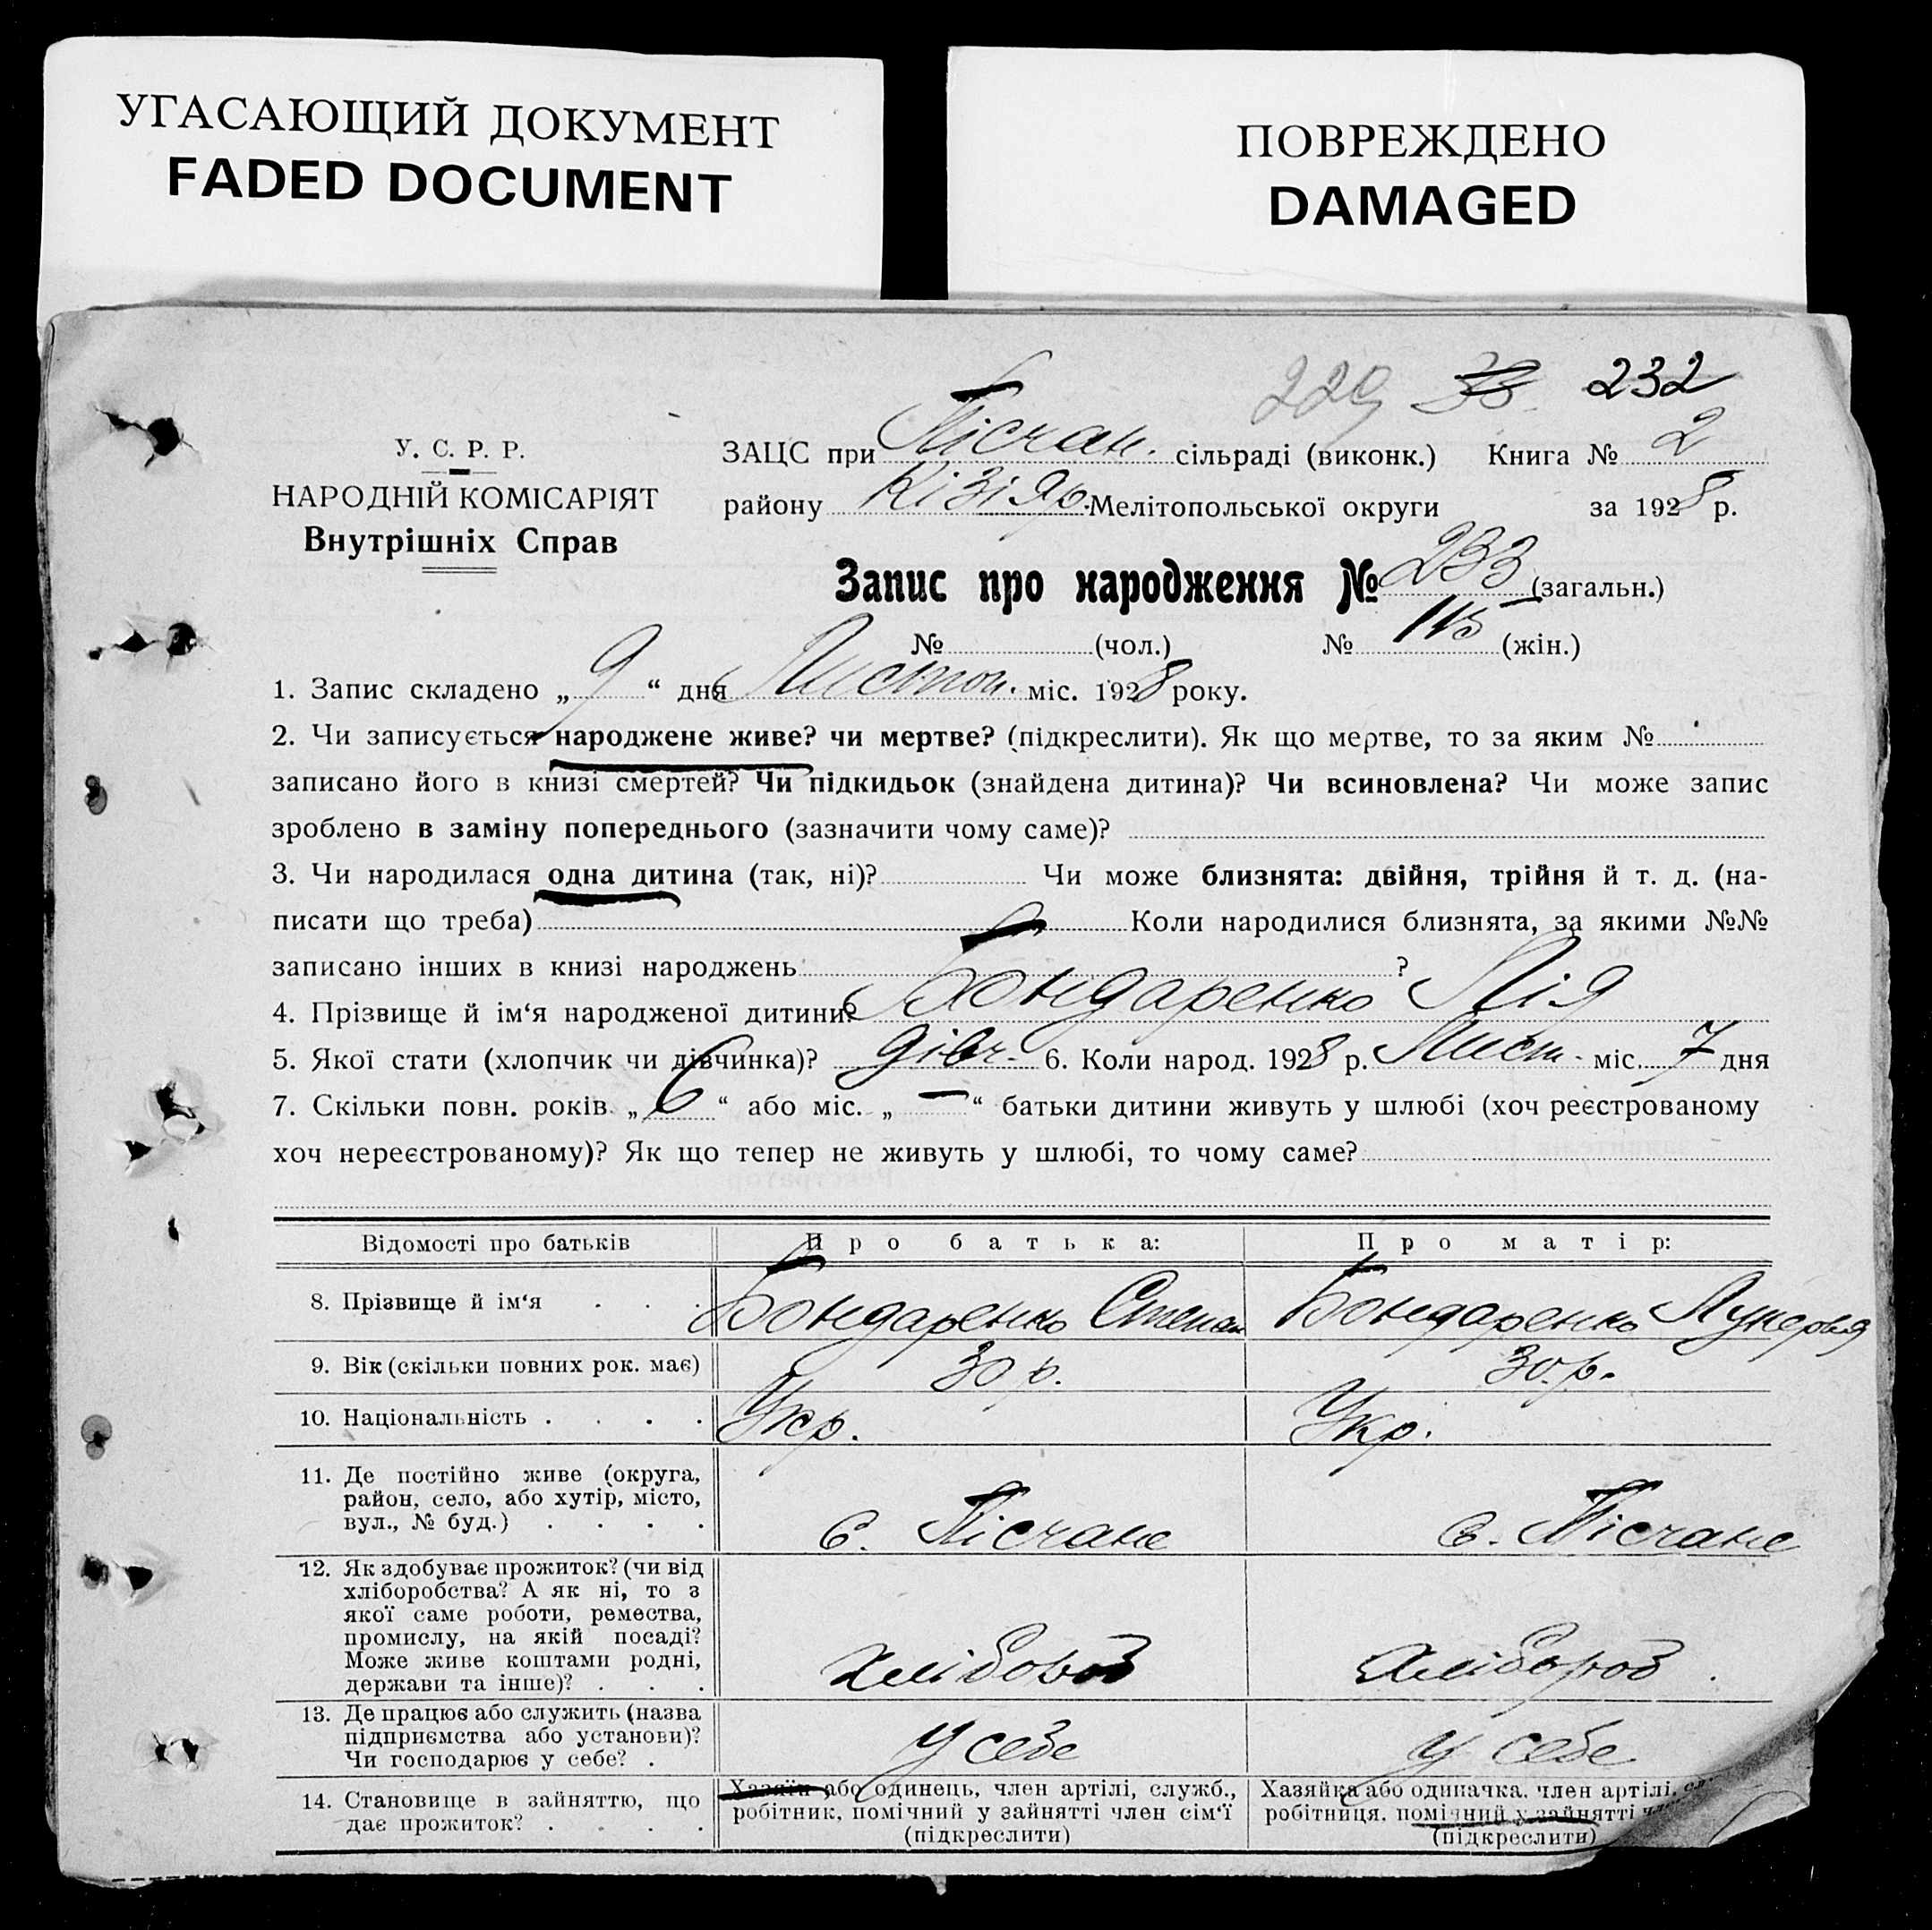 УГАСАЮЩИЙ ДОКУМЕНТ
FADED DOCUMENT
ПОВРЕЖДЕНО
DAMAGED
229 38 232
У. С. Р. Р.
НАРОДНІЙ КОМІСАРІЯТ
Внутрішніх Справ
ЗАЦС при Пісчан. сільраді (виконк.) Книга № 2
району Кізіяр. Мелітопольської округи за 1928 р.
Запис про народження № 233 (загальн.)
№ (чол.) № 115 (жін.)
1. Запис складено „ 9 “ дня Листоп. міс. 1928 року.
2. Чи записується народжене живе? чи мертве? (підкреслити). Як що мертве, то за яким №
записано його в книзі смертей? Чи підкидьок (знайдена дитина)? Чи всиновлена? Чи може запис
зроблено в заміну попереднього (зазначити чому саме)?
3. Чи народилася одна дитина (так, ні)? Чи може близнята: двійня, трійня й т. д. (на-
писати що треба) Коли народилися близнята, за якими №№
записано інших в книзі народжень ?
4. Прізвище й ім‘я народженої дитини? Бондаренко Лід
5. Якої стати (хлопчик чи дівчинка)? дівч. 6. Коли народ. 1928 р. Лист. міс. 7 дня
7. Скільки повн. років „ 6 “ або міс. „ — “ батьки дитини живуть у шлюбі (хоч реєстрованому
хоч нереєстрованому)? Як що тепер не живуть у шлюбі, то чому саме?
Відомості про батьків Про батька: Про матір:
8. Прізвище й ім‘я . . . Бондаренко Степан Бондаренко Лукерья
9. Вік (скільки повних рок. має) 30 р. 30 р.
10. Національність . . . . Укр. Укр.
11. Де постійно живе (округа,
район, село, або хутір, місто,
вул., № буд.) . . . . с. Пісчане с. Пісчане
12. Як здобуває прожиток? (чи від
хліборобства? А як ні, то з
якої саме роботи, ремества,
промислу, на якій посаді?
Може живе коштами родні,
держави та інше)? . . . Хлібороб Хлібороб.
13. Де працює або служить (назва
підприємства або установи)?
Чи господарює у себе? . У себе У себе
14. Становище в зайняттю, що
дає прожиток? . . . .
Хазяїн або одинець, член артілі, служб.,
робітник, помічний у зайнятті член сім‘ї
(підкреслити)
Хазяйка або одиначка, член артілі,
робітниця, помічний у зайнятті
(підкреслити)